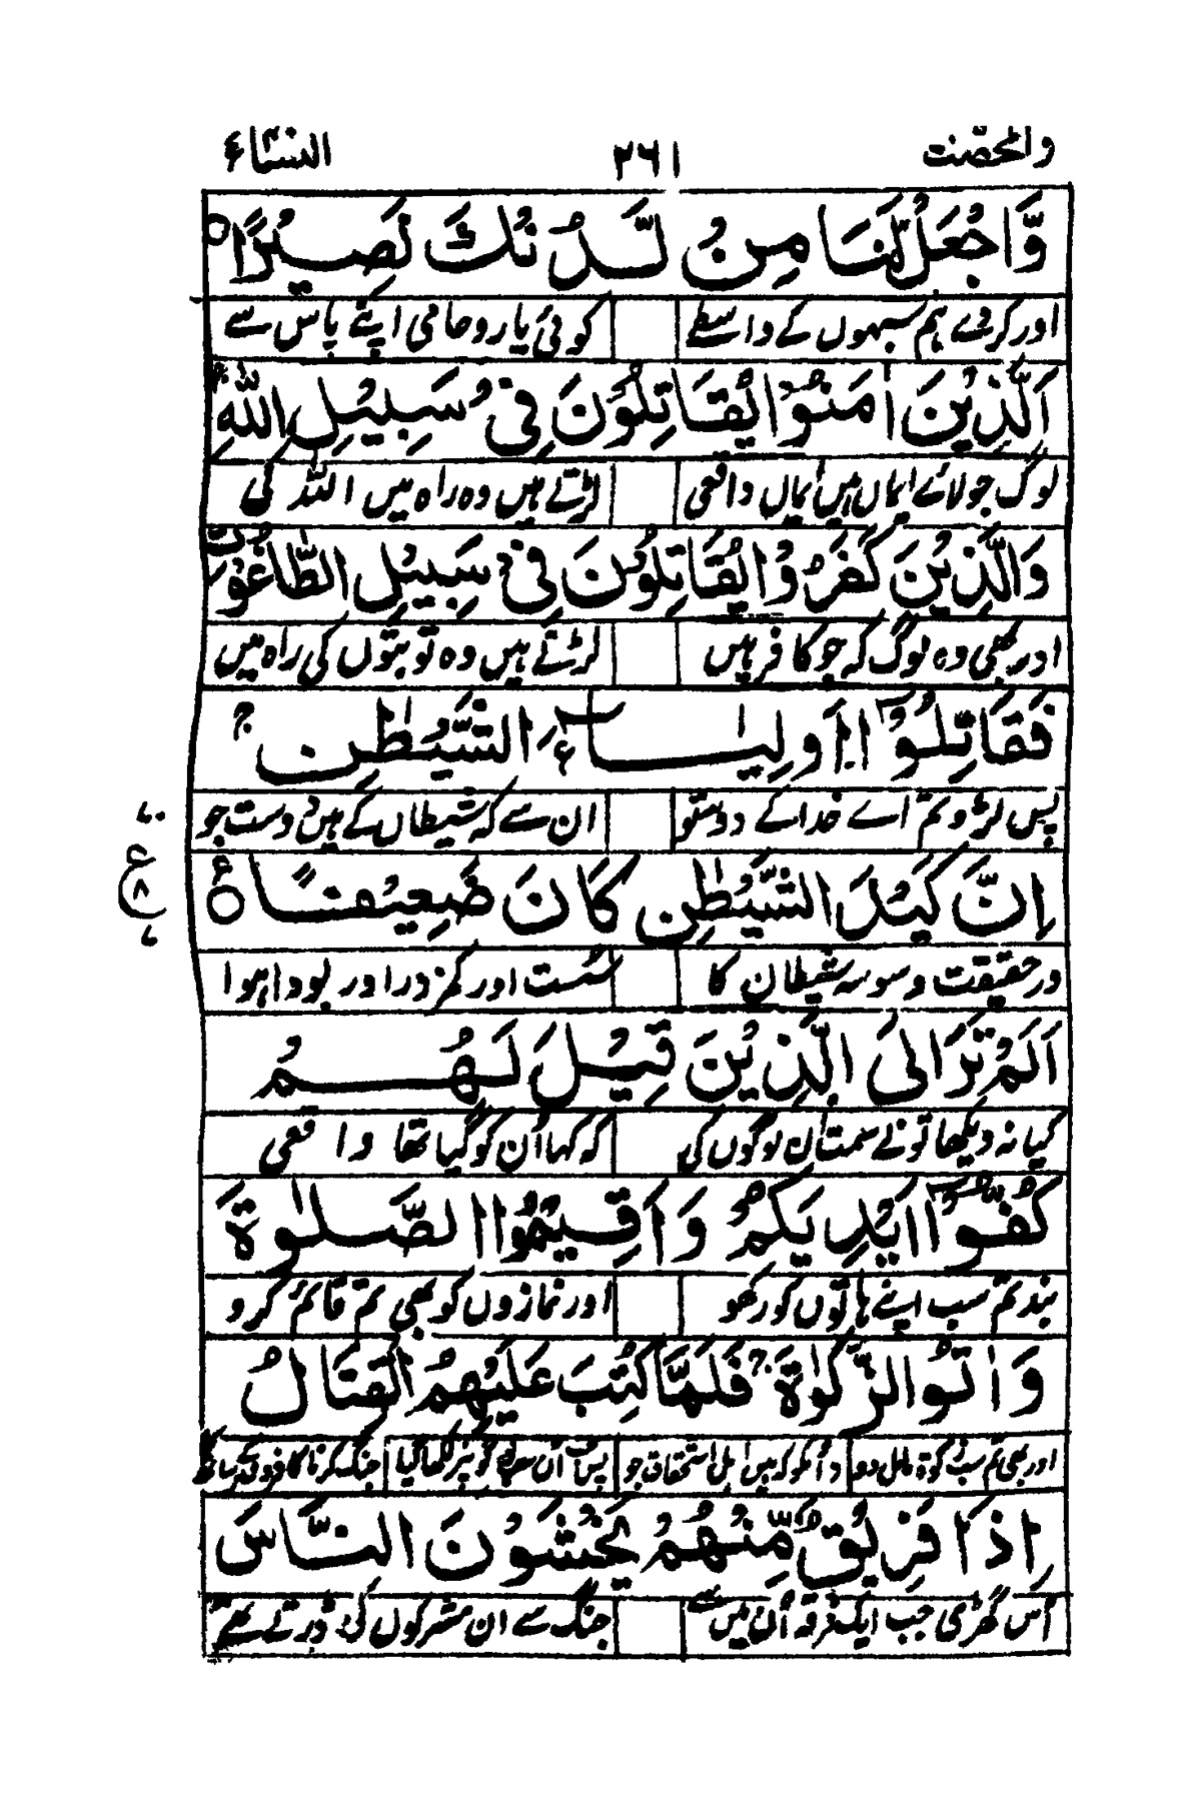 والمحصنت ٢٦١ النساء ٤
وَّاجْعَلْ لَّنَا مِنْ لَّدُنْكَ نَصِيْرًا ○
اور کر دے ہم سبھوں کے واسطے کوئی یار و حامی اپنے پاس سے
اَلَّذِيْنَ اٰمَنُوْا يُقَاتِلُوْنَ فِيْ سَبِيْلِ اللّٰهِ ج
لوگ جو لائے ایماں ہیں ایماں واقعی لڑتے ہیں وہ راہ میں اللہ کی
وَالَّذِيْنَ كَفَرُوْا يُقَاتِلُوْنَ فِيْ سَبِيْلِ الطَّاغُوْتِ
اور بھی وہ لوگ کہ جو کافر ہیں لڑتے ہیں وہ تو بتوں کی راہ میں
فَقَاتِلُوْٓا اَوْلِيَآءَ الشَّيْطٰنِ ج
پس لڑو تم اے خدا کے دوستو ان سے کہ شیطاں کے ہیں دوست جو
اِنَّ كَيْدَ الشَّيْطٰنِ كَانَ ضَعِيْفًا ○ ع
در حقیقت وسوسہ شیطان کا سست اور کمزور اور بودا ہوا
اَلَمْ تَرَ اِلَى الَّذِيْنَ قِيْلَ لَهُمْ
کیا نہ دیکھا تو نے سمت ان لوگوں کی کہ کہا ان کو گیا تھا واقعی
كُفُّوْٓا اَيْدِيَكُمْ وَاَقِيْمُوا الصَّلٰوةَ
بند تم سب اپنے ہاتوں کو رکھو اور نمازوں کو بھی تم قائم کرو
وَاٰتُوا الزَّكٰوةَ ج فَلَمَّا كُتِبَ عَلَيْهِمُ الْقِتَالُ
اور بھی تم سب زکوٰۃ مال دو انکو کہ ہیں اہل استحقاق جو پس ان سبھوں پر لکھا گیا جنگ کرنا کافروں کے ساتھ
اِذَا فَرِيْقٌ مِّنْهُمْ يَخْشَوْنَ النَّاسَ
اس گھڑی جب ایک فرقہ ان میں سے جنگ سے ان مشرکوں کی ڈرتے تھے